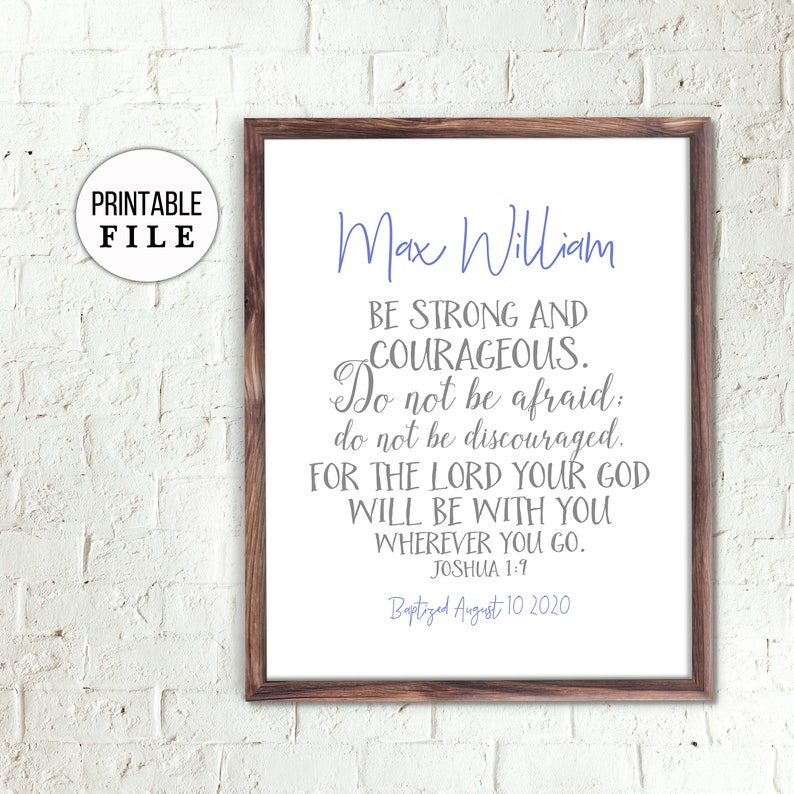 PRINTABLE
FILE
Max William
BE STRONG AND
COURAGEOUS.
Do not be afraid;
do not be discouraged,
FOR THE LORD YOUR GOD
WILL BE WITH YOU
WHEREVER YOU GO.
JOSHUA 1:9
Baptized August 10 2020